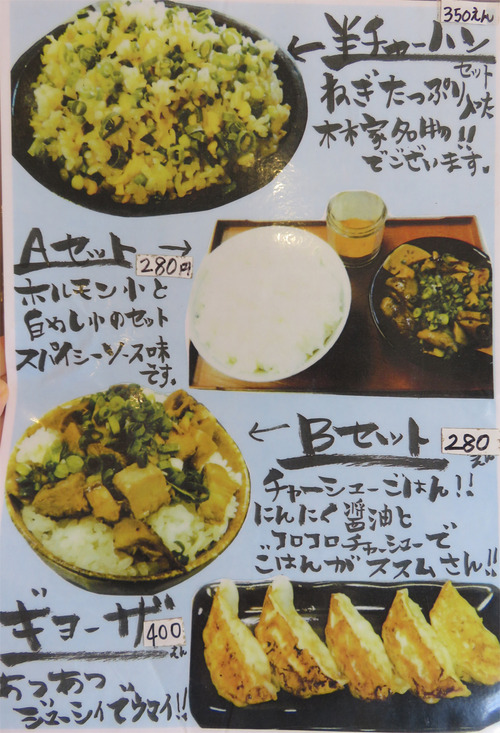 350えん
半チャーハン
セット
ねぎたっぷり入った
木村家名物!!
でございます。
Aセット
280円
ホルモン小と
白めし小のセット
スパイシーソース味
です。
Bセット
280
えん
チャーシューごはん!!
にんにく醤油と
コロコロチャーシューで
ごはんがススムさん!!
ギョーザ
400
えん
あつあつ
ジューシィでウマイ!!